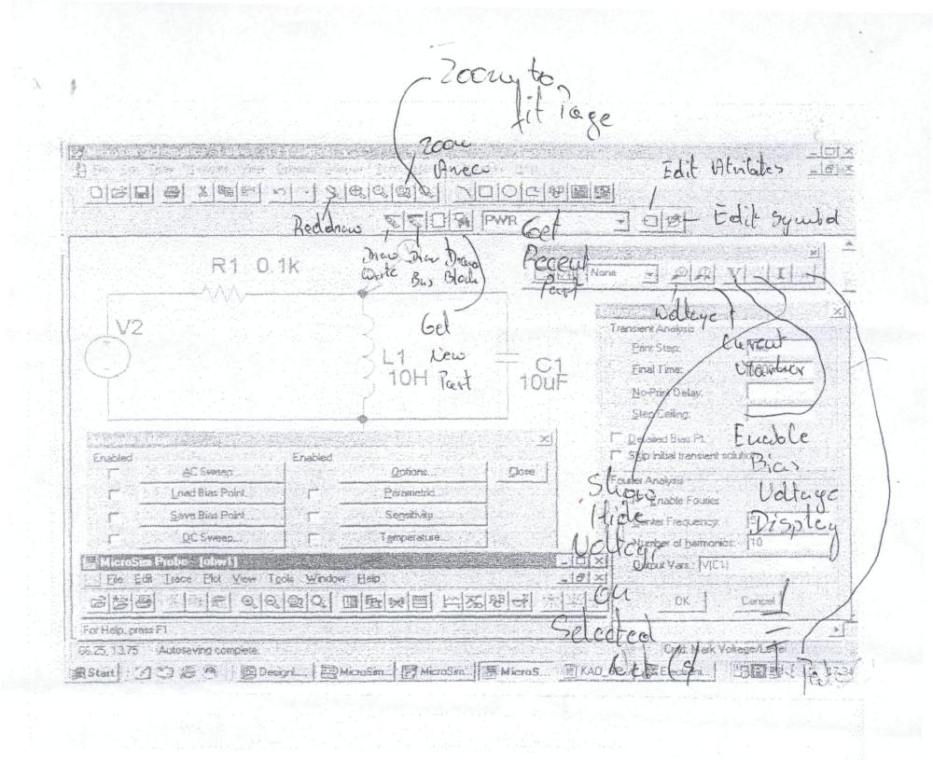 Zoom to
fit Page
Zoom
Area
Edit Atributes
Edit Symbol
Redraw
PWR
Get
Recent
Part
Draw
Draw
Draw
Bus
Block
R1 0.1k
None
V
I
Get
New
Part
V2
L1
10H
C1
10uF
Voltage
Current
Marker
Transient Analysis
Print Step:
Final Time:
No-Print Delay:
Step Ceiling:
Detailed Bias Pt.
Skip initial transient solution
Enable
Bias
Voltage
Display
Enabled
Enabled
AC Sweep...
Options...
Close
Load Bias Point...
Parametric...
Save Bias Point...
Sensitivity...
DC Sweep...
Temperature...
Fourier Analysis
Enable Fourier
Center Frequency:
Number of harmonics: 10
Output Vars.: V(C1)
OK
Cancel
Show
Hide
Voltage
on
Selected
Net(s)
MicroSim Probe - [obw1]
File Edit Trace Plot View Tools Window Help
For Help, press F1
66.25, 13.75 Autosaving complete.
Cmd: Mark Voltage/Level
Start
DesignL...
MicroSim...
MicroSim...
MicroS...